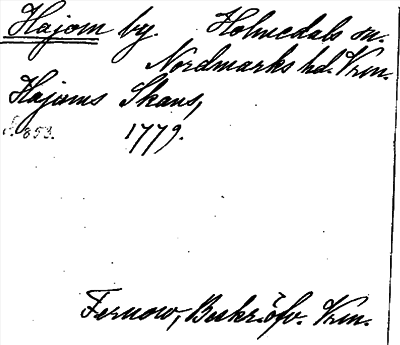 Hajom by. Holmedals sn.
Nordmarks hd. Vrm.
Hajoms Skans,
s. 853. 1779.
Fernow, Beskr. öfv. Vrm.